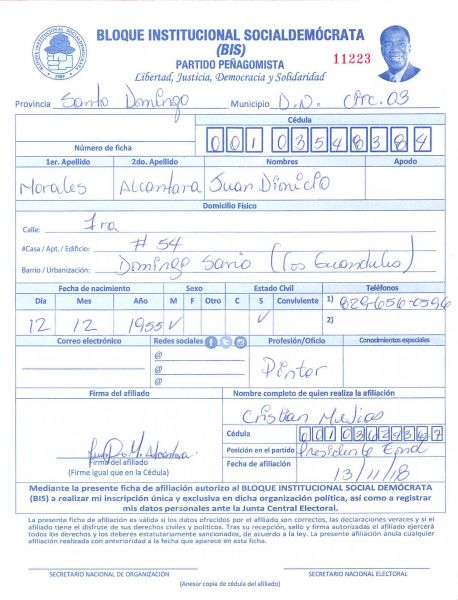 BLOQUE INSTITUCIONAL SOCIALDEMÓCRATA
(BIS)
PARTIDO PEÑAGOMISTA
11223
Libertad, Justicia, Democracia y Solidaridad
Provincia Santo Domingo Municipio D.N. Circ. 03
Cédula
Número de ficha 001 0354838 4
1er. Apellido 2do. Apellido Nombres Apodo
Morales Alcantara Juan Dionicio
Domicilio Físico
Calle: 1ra
#Casa / Apt. / Edificio: # 54
Barrio / Urbanización: Domingo Savio (Los Guandules)
Fecha de nacimiento Sexo Estado Civil Teléfonos
Día Mes Año M F Otro C S Conviviente 1) 829-656-0596
12 12 1955 √ √ 2)
Correo electrónico Redes sociales Profesión/Oficio Conocimientos especiales
@
@
@
Pintor
Firma del afiliado Nombre completo de quien realiza la afiliación
Cristian Mejias
Cédula
Posición en el partido Presidente
Firma del afiliado
(Firme igual que en la Cédula)
Fecha de afiliación 13/11/18
Mediante la presente ficha de afiliación autorizo al BLOQUE INSTITUCIONAL SOCIAL DEMÓCRATA
(BIS) a realizar mi inscripción única y exclusiva en dicha organización política, así como a registrar
mis datos personales ante la Junta Central Electoral.
La presente ficha de afiliación es válida si los datos ofrecidos por el afiliado son correctos, las declaraciones veraces y si el
afiliado tiene el disfrute de sus derechos civiles y políticos. Tras su recepción, sello y firma autorizadas el afiliado ejercerá
todos los derechos y los deberes estatutariamente sancionados, de acuerdo a la ley. La presente afiliación anula cualquier
afiliación realizada con anterioridad a la fecha que aparece en esta ficha.
SECRETARIO NACIONAL DE ORGANIZACIÓN SECRETARIO NACIONAL ELECTORAL
(Anexar copia de cédula del afiliado)